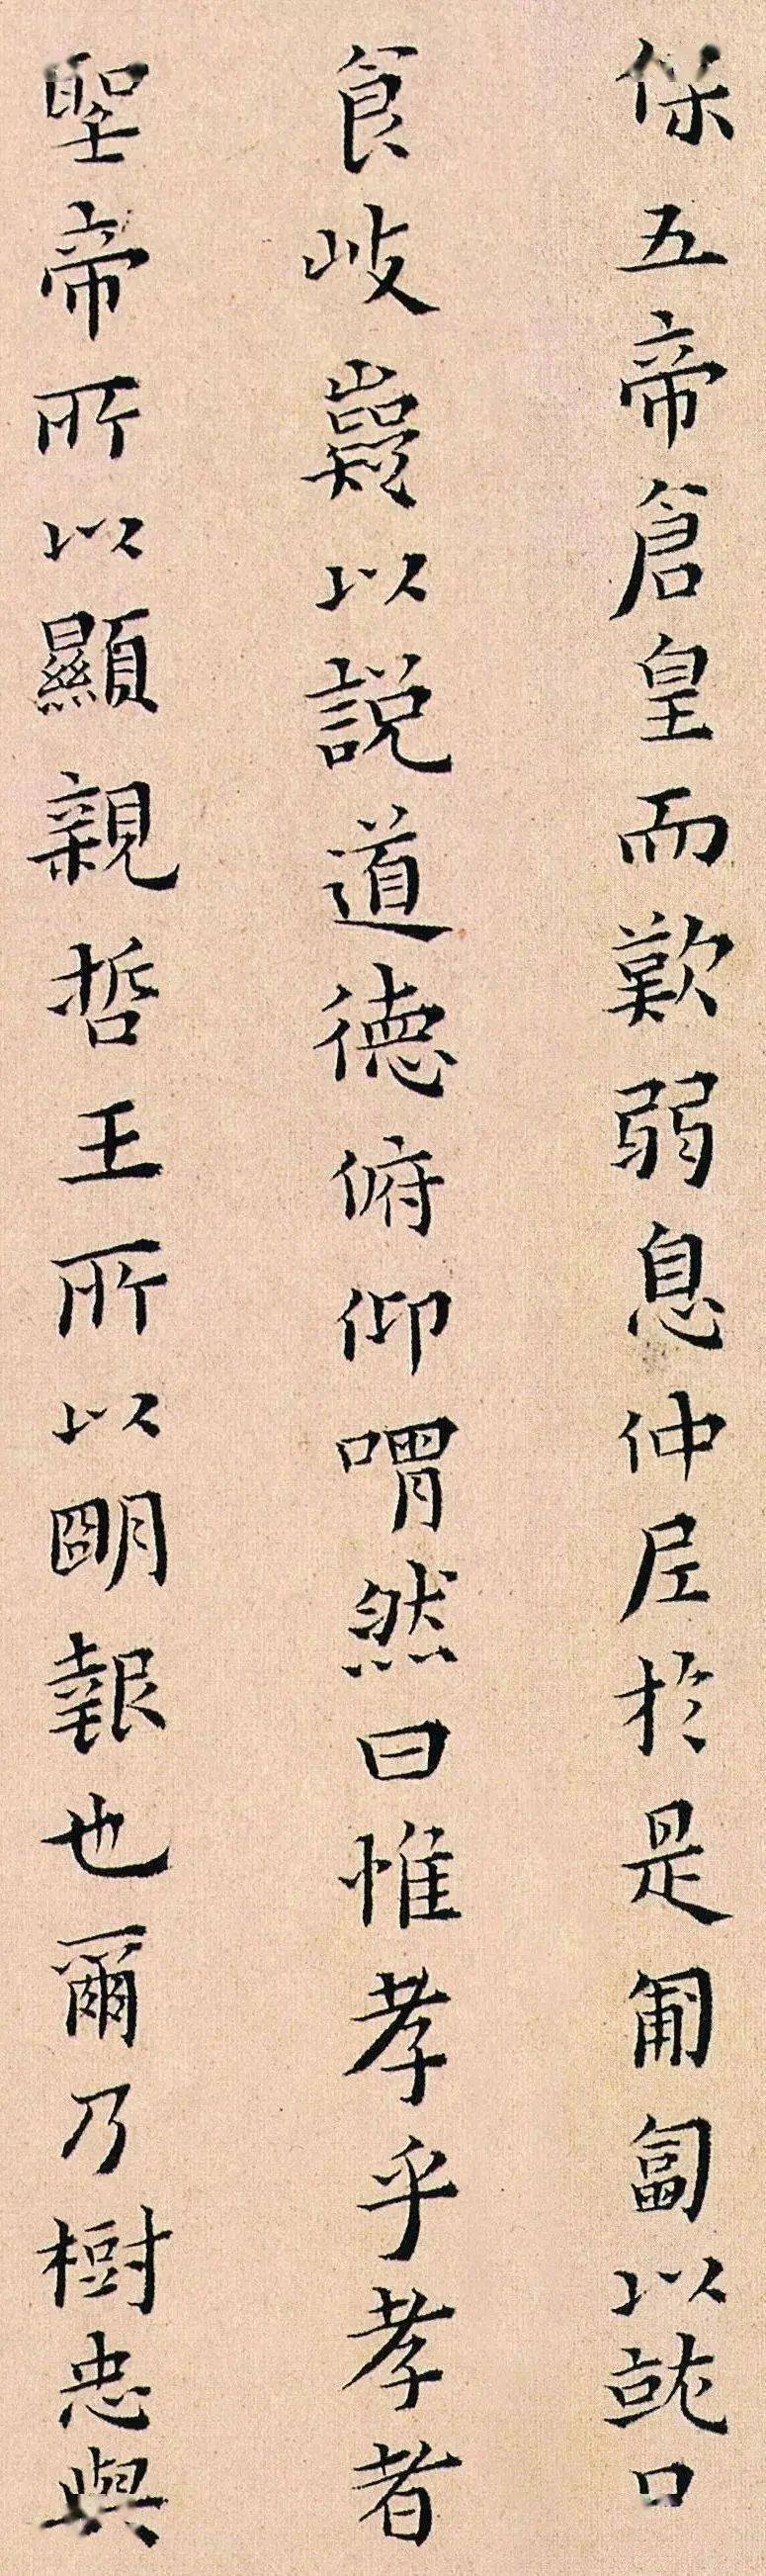 保五帝倉皇而歎弱息仲尼於是匍匐以就口
食岐嶷以説道德俯仰喟然曰惟孝乎孝者
聖帝所以顯親哲王所以明報也爾乃樹忠與